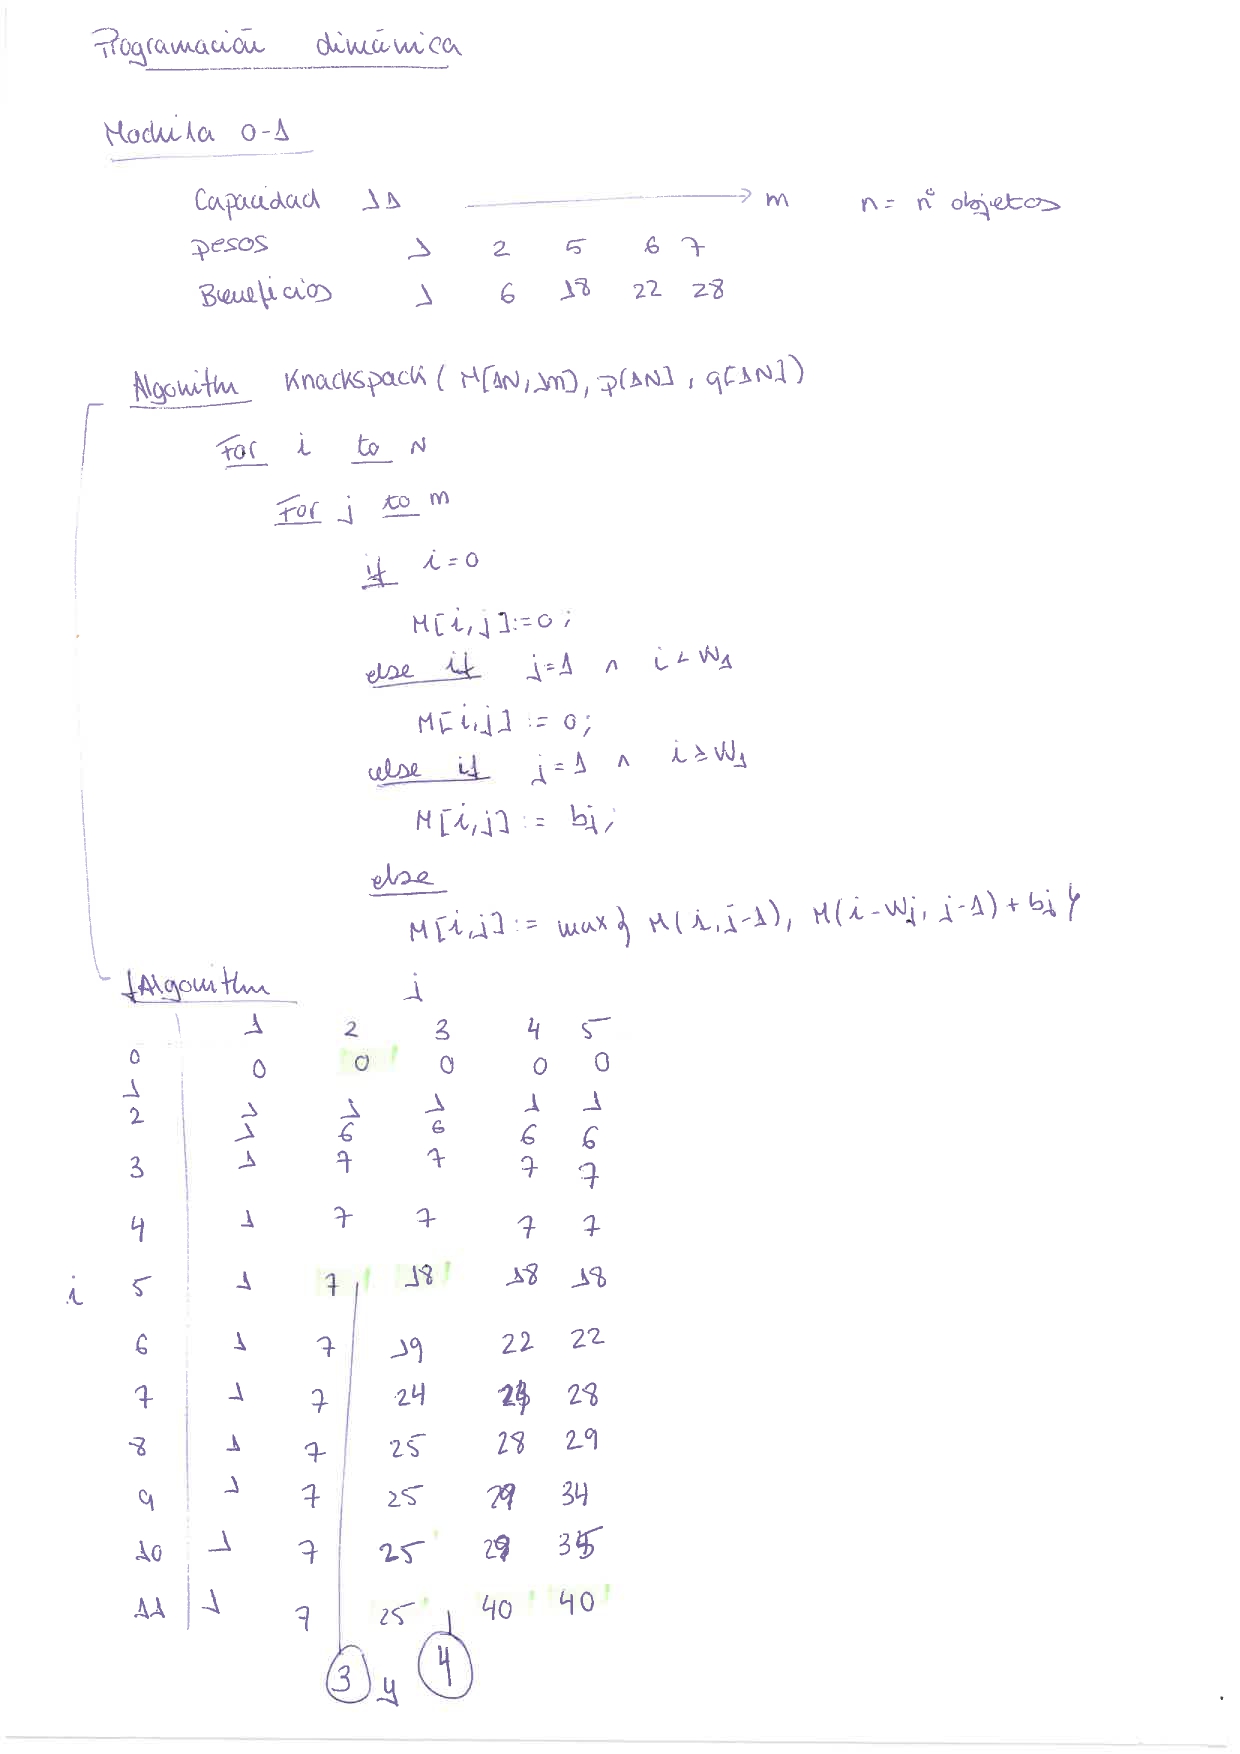 Programación dinámica
Mochila 0-1
Capacidad 11 → m n = nº objetos
pesos 1 2 5 6 7
Beneficios 1 6 18 22 28
Algorithm Knackspack ( M[1N, 1m], p[1N], q[1N])
For i to N
For j to m
if i = 0
M[i, j] := 0 ;
else if j = 1 ∧ i < W1
M[i, j] := 0 ;
else if j = 1 ∧ i ≥ W1
M[i, j] := bj ;
else
M[i, j] := max { M(i, j-1), M(i-Wj, j-1) + bj }
fAlgorithm j
1 2 3 4 5
0 0 0 0 0 0
1 1 1 1 1 1
2 1 6 6 6 6
3 1 7 7 7 7
4 1 7 7 7 7
i 5 1 7 18 18 18
6 1 7 19 22 22
7 1 7 24 24 28
8 1 7 25 28 29
9 1 7 25 29 34
10 1 7 25 29 35
11 1 7 25 40 40
3 y 4